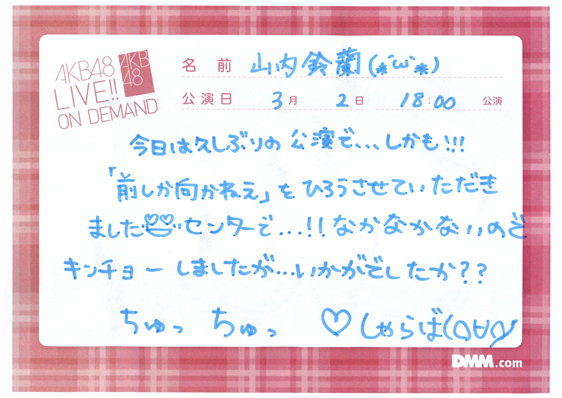 AKB48
LIVE!!
ON DEMAND
AKB
48
名前 山内鈴蘭(*´ω`*)
公演日 3月 2日 18:00 公演
今日は久しぶりの公演で、、、しかも!!!
「前しか向かねえ」をひろうさせていただき
ました センターで...!!なかなかないので
キンチョーしましたが...いかがでしたか??
ちゅっ ちゅっ ♡しゃらば(∩∀∩)
DMM.com